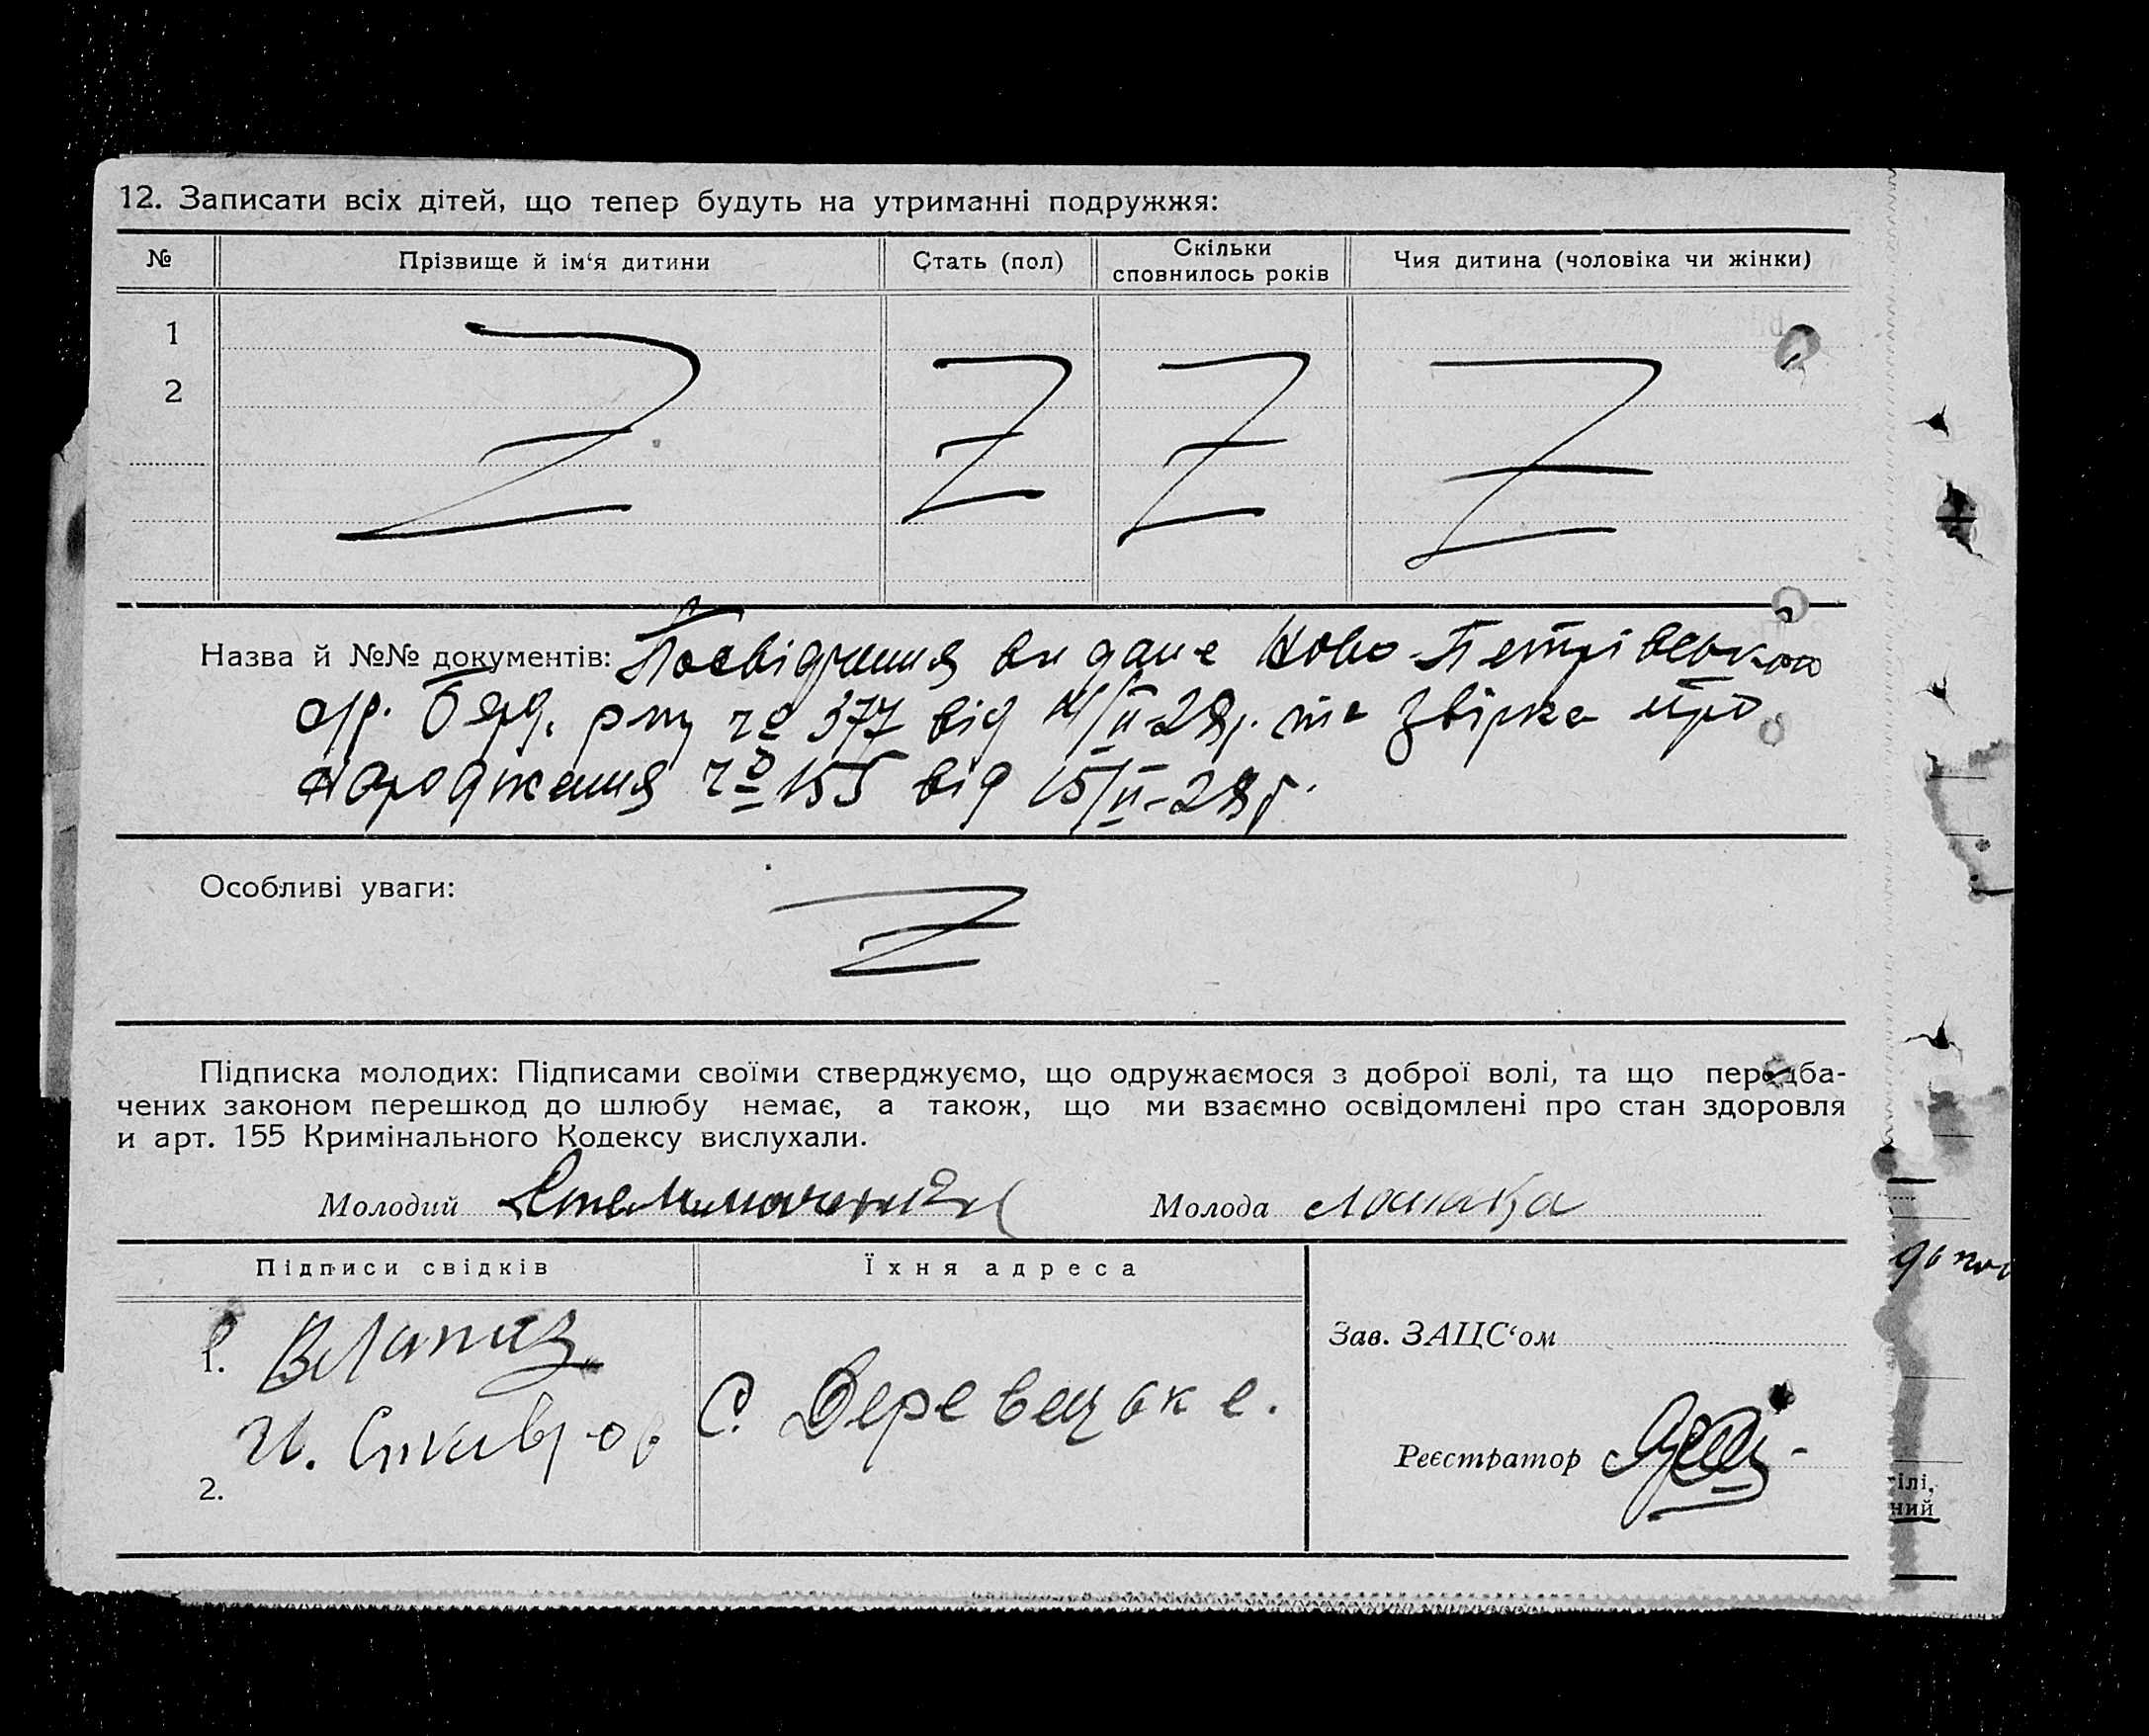 12. Записати всіх дітей, що тепер будуть на утриманні подружжя:
№ Прізвище й ім‘я дитини Стать (пол) Скільки сповнилось років Чия дитина (чоловіка чи жінки)
1
2
Назва й №№ документів: Посвідчення видане Ново-Петрівською
с/р. Берд. р-ну № 377 від /II-28р. та звірка про
народження № 155 від 15/II-28р.
Особливі уваги:
Підписка молодих: Підписами своїми стверджуємо, що одружаємося з доброї волі, та що передба-
чених законом перешкод до шлюбу немає, а також, що ми взаємно освідомлені про стан здоровля
и арт. 155 Кримінального Кодексу вислухали.
Молодий Молода
Підписи свідків Їхня адреса
Зав. ЗАЦС‘ом
1.
С. Деревецьке.
Реєстратор
2.
ілі,
ний